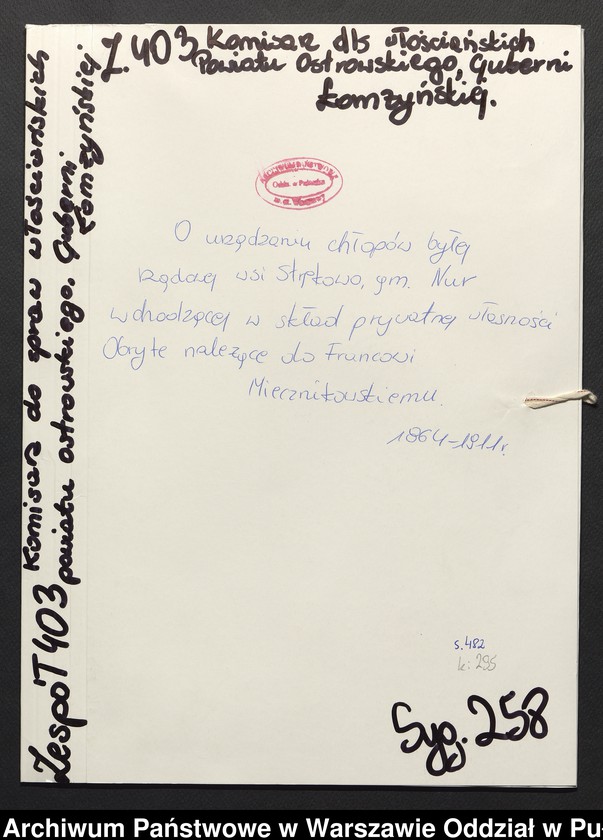 Z. 403 Komisarz d/s włościańskich
Powiatu Ostrowskiego, Guberni
Łomżyńskiej.
Zespół 403 Komisarz do spraw włościańskich
powiatu ostrowskiego. Guberni
Łomżyńskiej
ARCHIWUM PAŃSTWOWE
Oddz. w Pułtusku
m.st. Warszawy
O urządzaniu chłopów byłej
rządowej wsi Strękowo, gm. Nur
wchodzącej w skład prywatnej własności
Obryte należące do Francowi
Miecznikowskiemu.
1864-1911r.
s. 482
k: 295
Syg. 258
Archiwum Państwowe w Warszawie Oddział w Pu